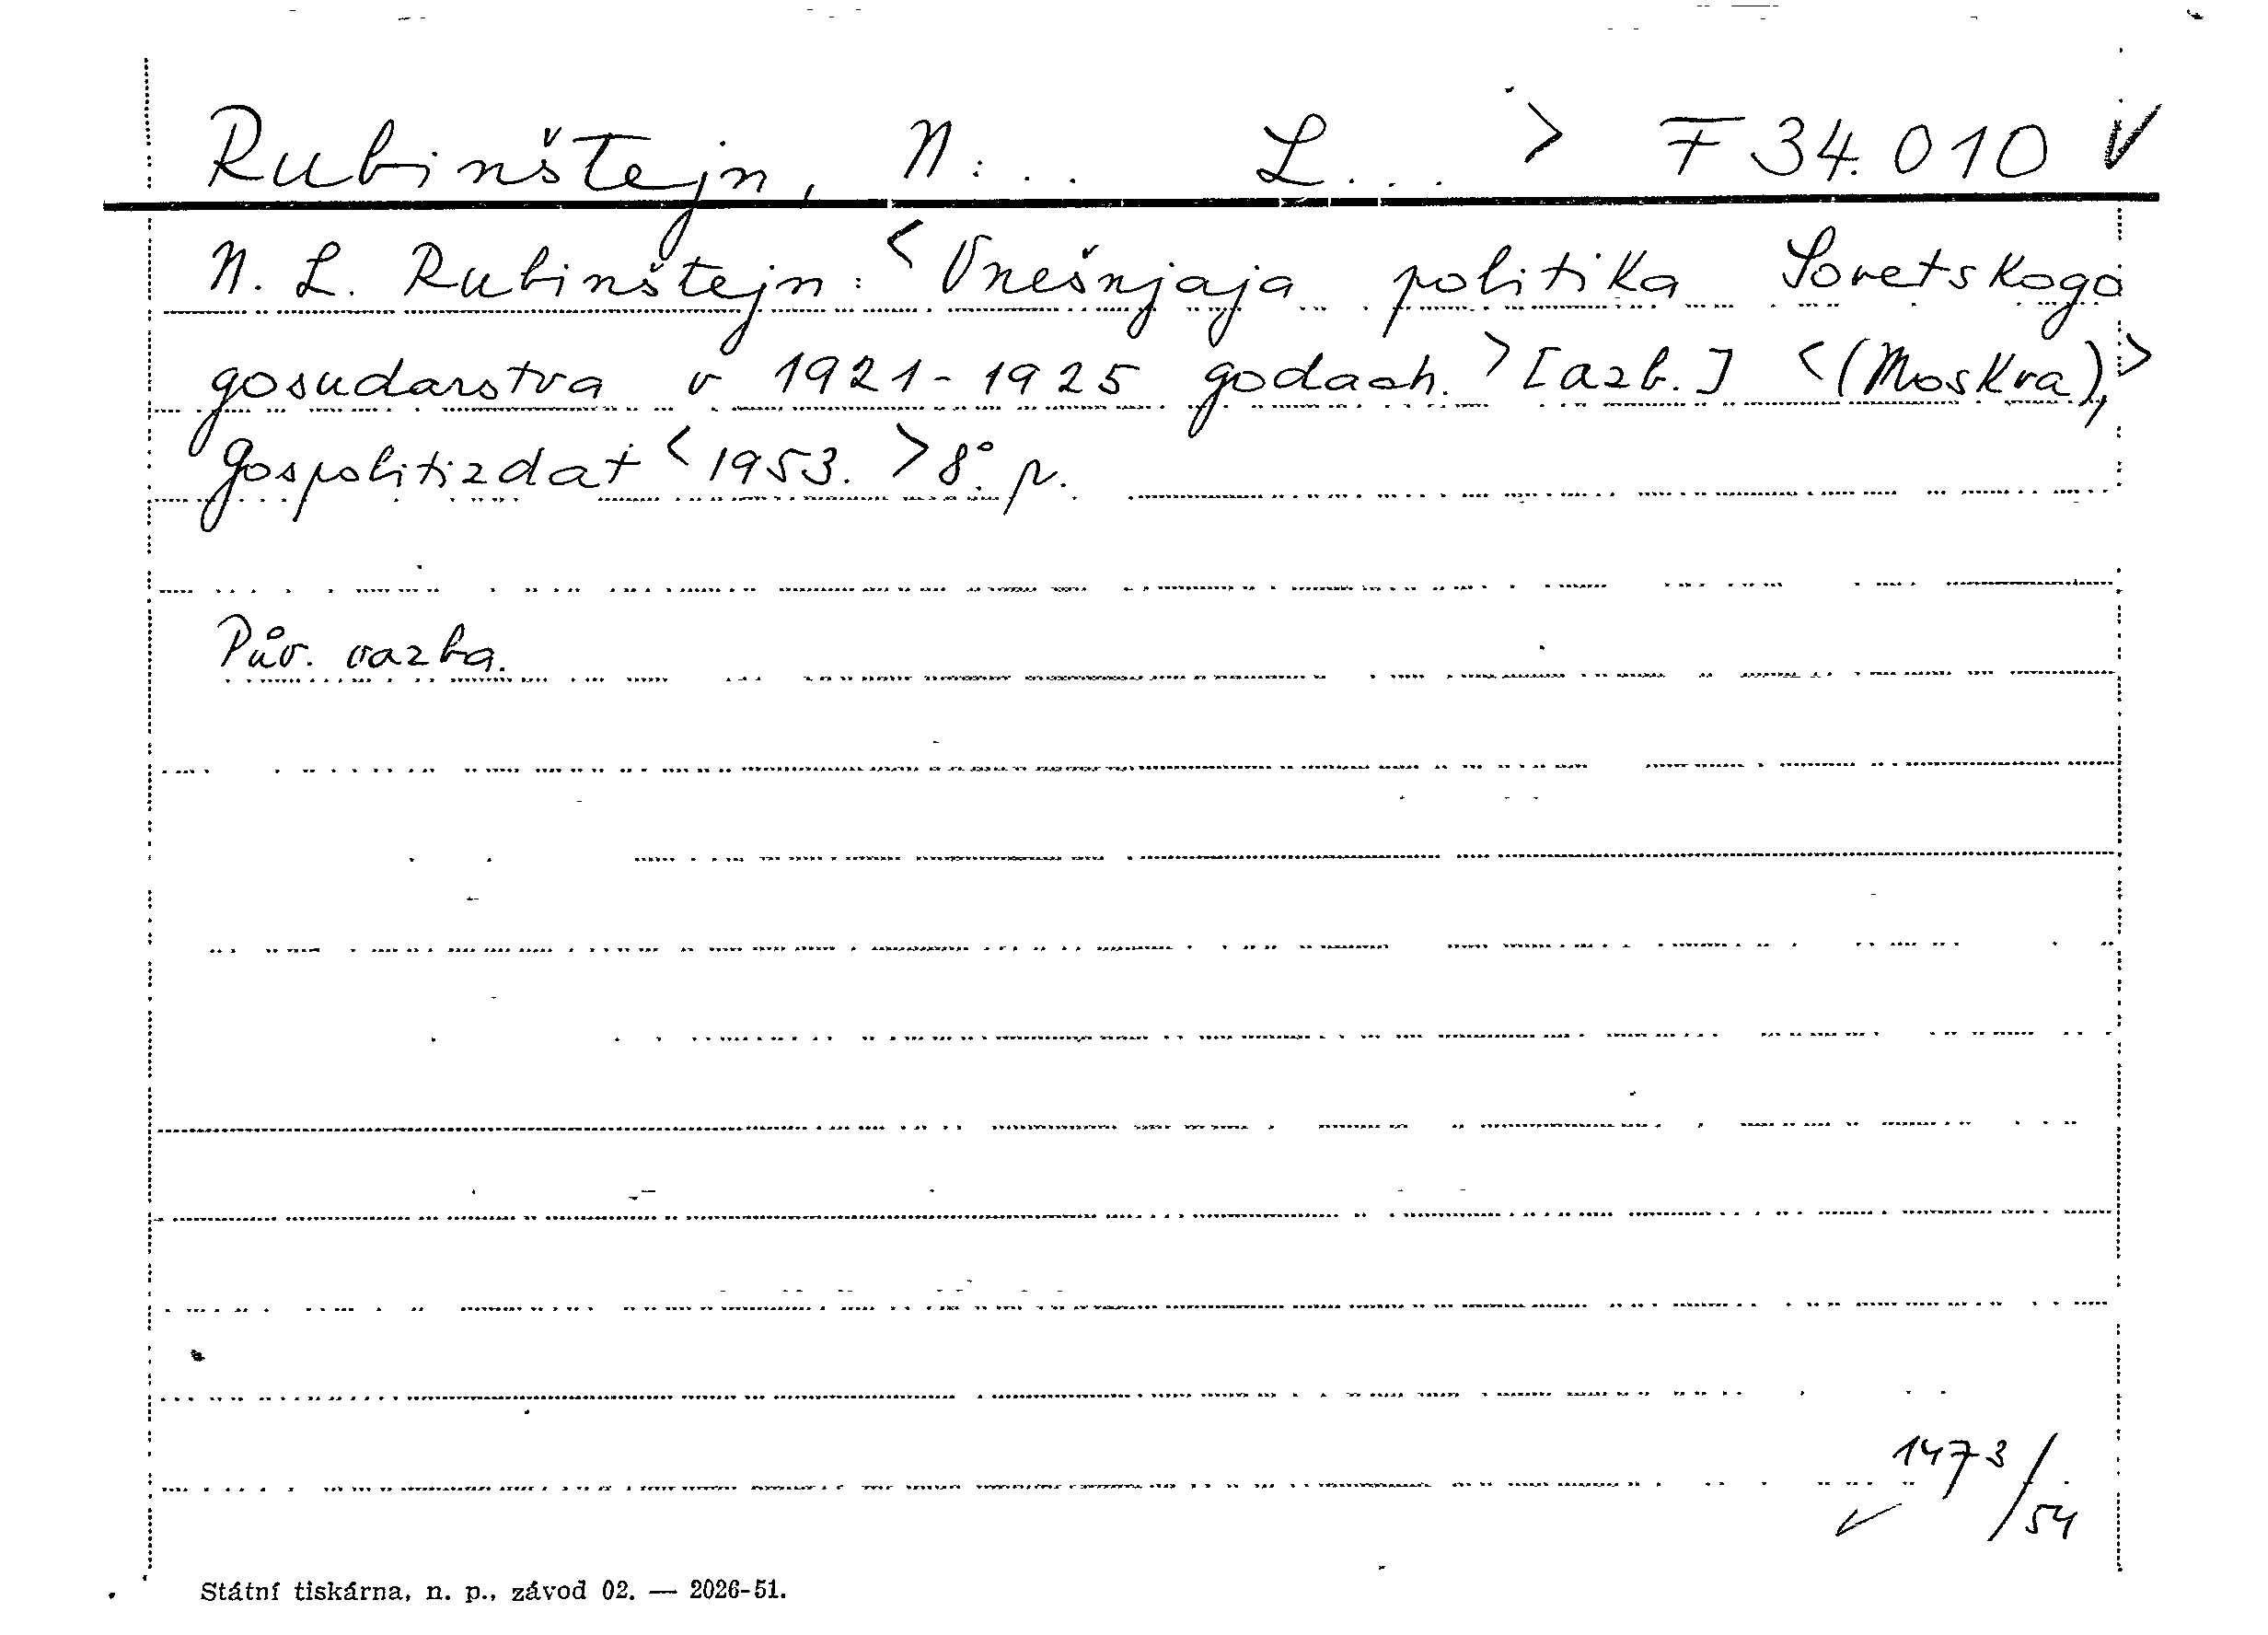 Rubinštejn, N... L... > F 34.010 V
N. L. Rubinštejn: < Vnešnjaja politika Sovetskogo
gosudarstva v 1921-1925 godach. > [azb.] < (Moskva), >
Gospolitizdat < 1953. > 8°. p.
Pův. vazba.
1473/54
Státní tiskárna, n. p., závod 02. — 2026-51.